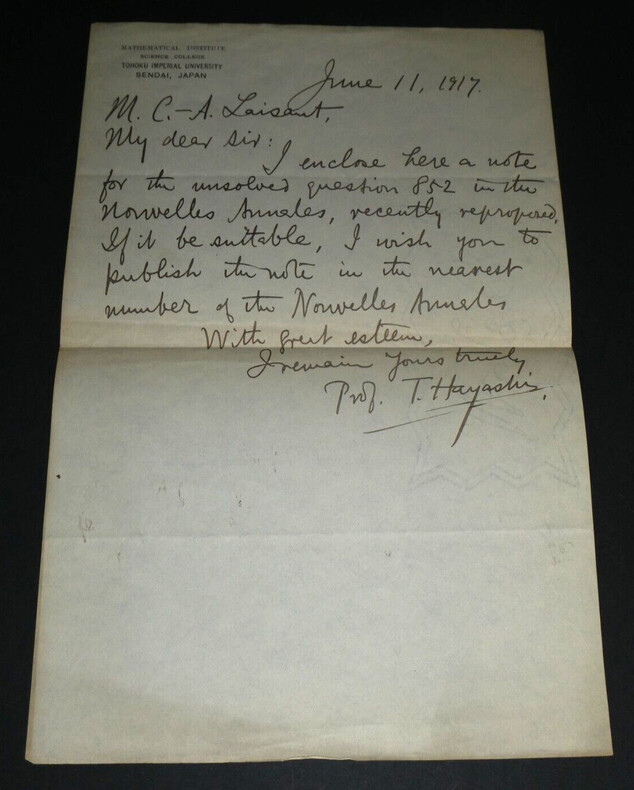 MATHEMATICAL INSTITUTE
SCIENCE COLLEGE
TOHOKU IMPERIAL UNIVERSITY
SENDAI, JAPAN
June 11, 1917.
M. C.-A. Laisant,
My dear Sir:
I enclose here a note
for the unsolved question 852 in the
Nouvelles Annales, recently reproposed.
If it be suitable, I wish you to
publish the note in the nearest
number of the Nouvelles Annales
With great esteem,
I remain yours truely
Prof. T. Hayashi.